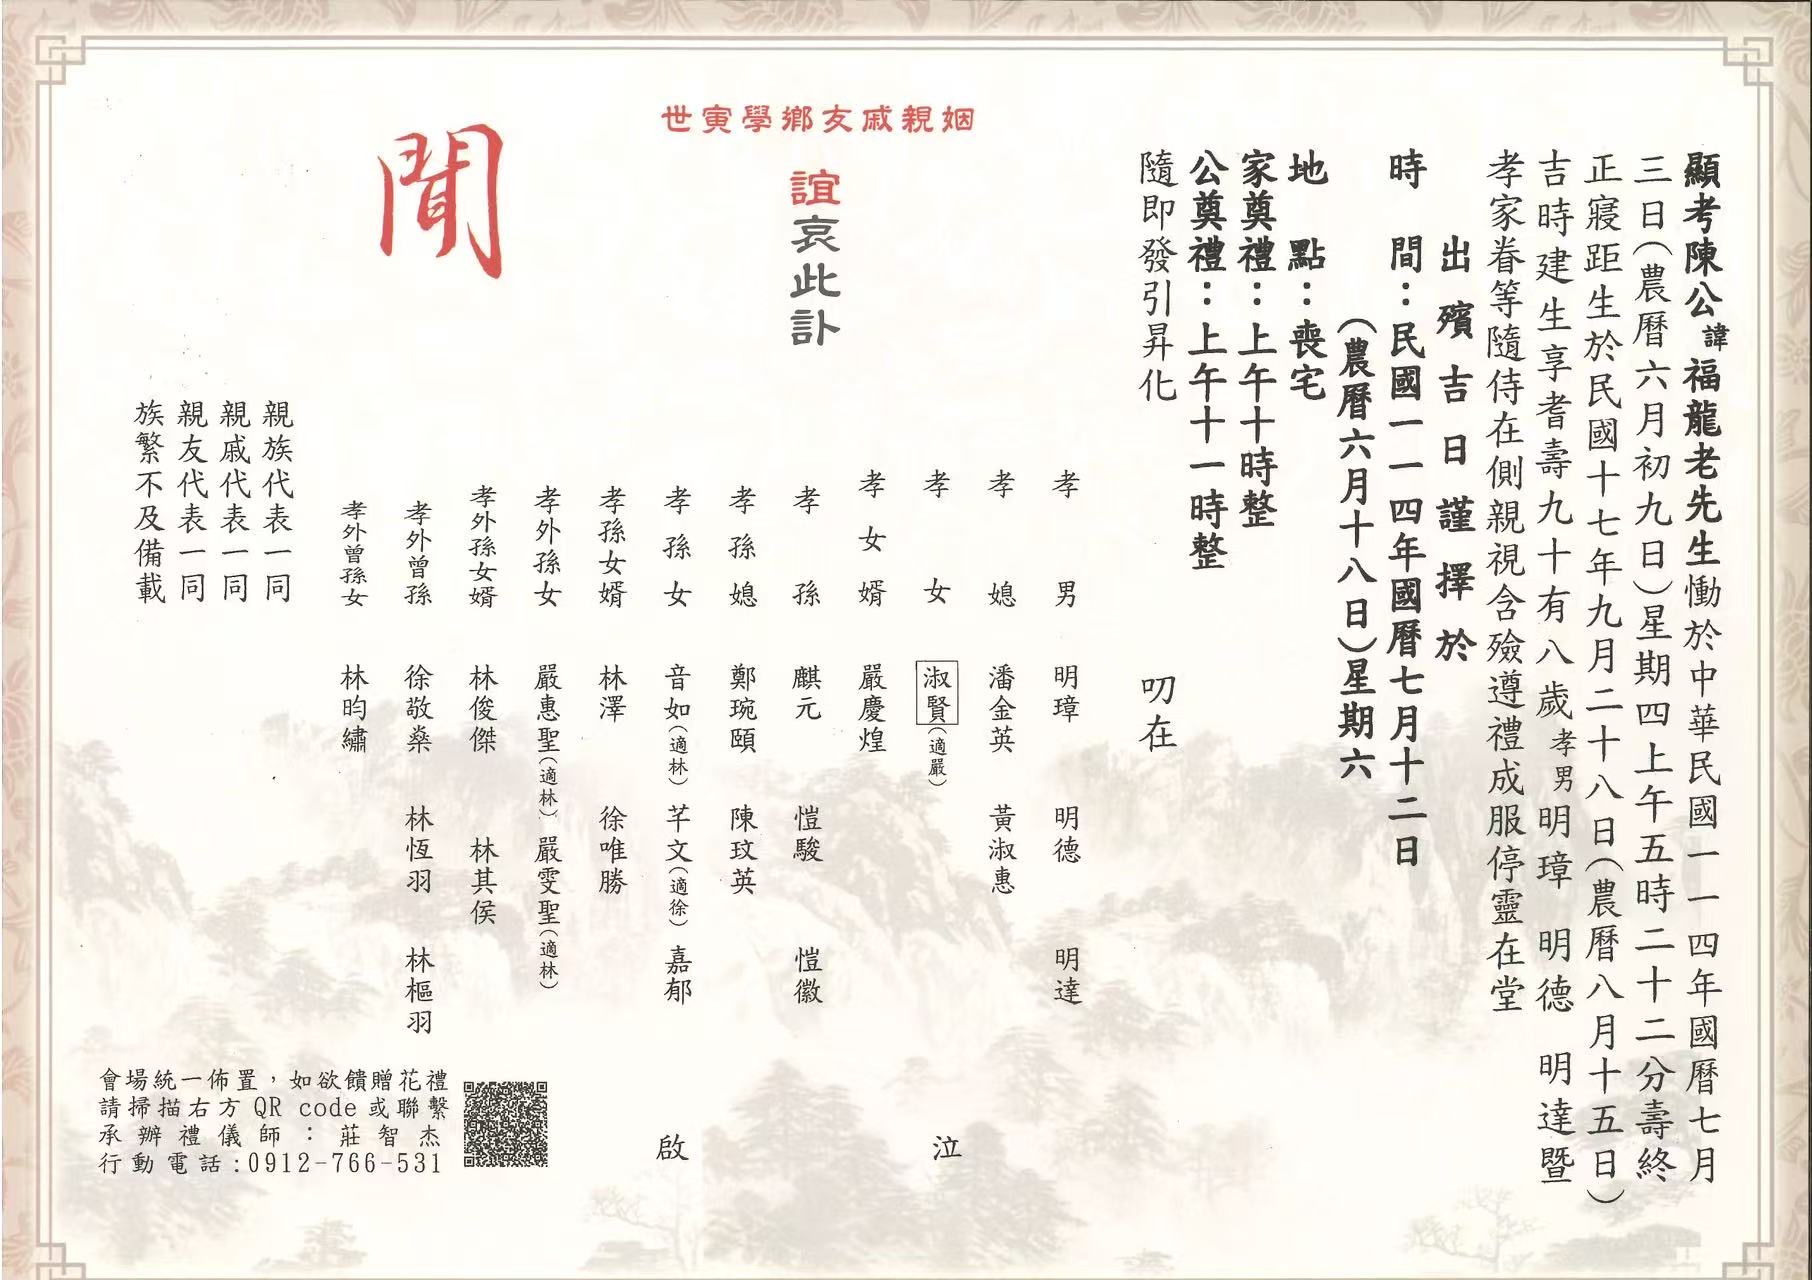 顯考陳公諱福龍老先生慟於中華民國一一四年國曆七月
三日(農曆六月初九日)星期四上午五時二十二分壽終
正寢距生於民國十七年九月二十八日(農曆八月十五日)
吉時建生享耆壽九十有八歲孝男明璋 明德 明達暨
孝家眷等隨侍在側親視含殮遵禮成服停靈在堂
出殯吉日謹擇於
時間：民國一一四年國曆七月十二日
(農曆六月十八日)星期六
地點：喪宅
家奠禮：上午十時整
公奠禮：上午十一時整
隨即發引昇化 叨在
姻親戚友鄉學寅世
誼哀此訃
聞
孝男 明璋 明德 明達
孝媳 潘金英 黃淑惠
孝女 淑賢(適嚴)
泣
孝女婿 嚴慶煌
孝孫 麒元 愷駿 愷徽
孝孫媳 鄭琬頤 陳玟英
孝孫女 音如(適林) 芊文(適徐) 嘉郁
啟
孝孫女婿 林澤 徐唯勝
孝外孫女 嚴惠聖(適林) 嚴雯聖(適林)
孝外孫女婿 林俊傑 林其侯
孝外曾孫 徐敬燊 林恆羽 林樞羽
孝外曾孫女 林昀繡
親族代表一同
親戚代表一同
親友代表一同
族繁不及備載
會場統一佈置，如欲饋贈花禮
請掃描右方 QR code 或聯繫
承辦禮儀師：莊智杰
行動電話:0912-766-531